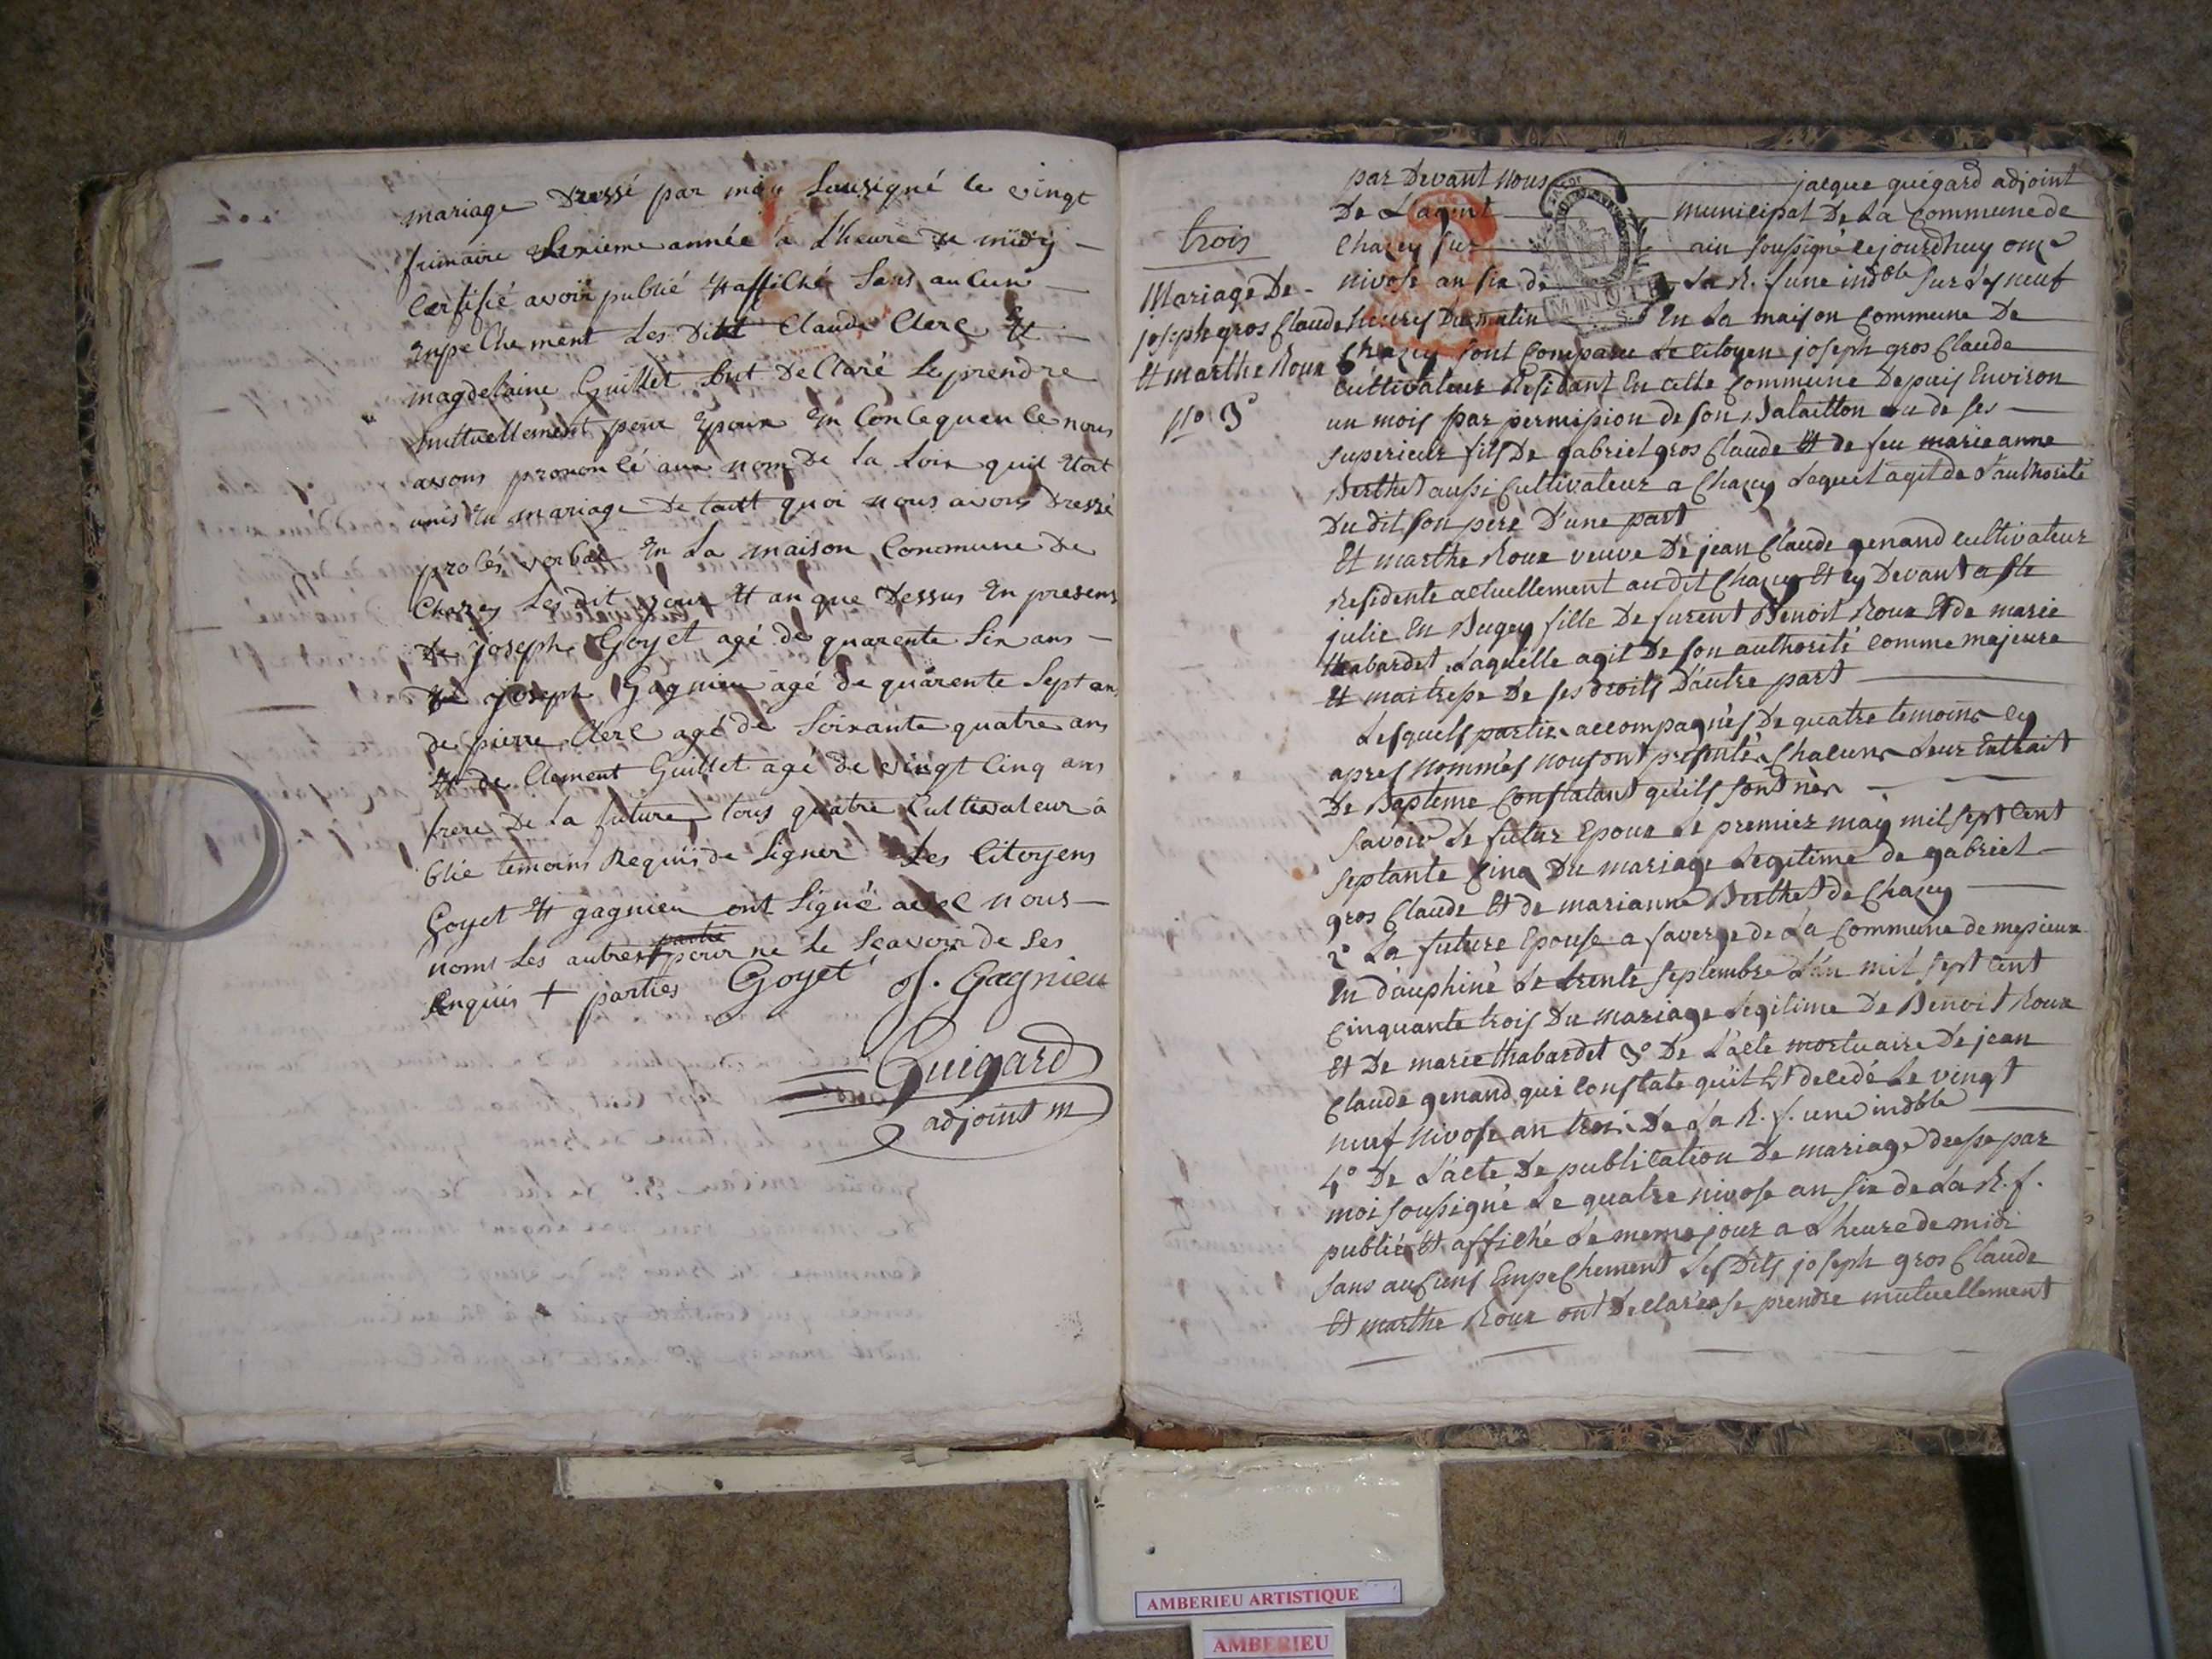 mariage Dressé par moy Sousigné le vingt
frimaire Sixieme année a L'heure de midy
Certifié avoir publié Et affiché Sans aucun
Enpechement Les Dits Claude Clerc Et
magdelaine Guillet Ont Declaré Se prendre
mutuellement pour Epoux En Consequence nous
avons prononcé aux nom De la Loix quil Etoit
unis En mariage De tout quoi nous avons Dressé
procés verbal En La maison Commune De
Chazey Les dit jour Et an que Dessus En presens
De joseph Goyet agé de quarente Six ans
De joseph Gagnieu agé de quarente Sept an
de pierre Clerc agé de Soixante quatre ans
Et de Clement Guillet agé de vingt Cinq ans
frere De La future tous quatre Cultivateur a
blie temoins Requis de Signer Les Citoyens
Goyet Et gagnieu ont Signé avec nous
noms Les autres partie pour ne Le Scavoir de Ses
Enquis + parties Goyet J. Gagnieu
Guigard
adjoint m
trois
Mariage De
joseph gros Claude
Et marthe Roux
No 3
par Devant nous jacque guigard adjoint
De L'agent municipal De La Commune de
Chazey sur ain soussigné cejourdhuy onze
nivose an six de La R. f une indble sur Les neuf
heures Du matin En La maison Commune De
Chazey sont Comparu Le Citoyen joseph gros Claude
Cultivateur Residant En cette Commune Depuis Environ
un mois par permission de son Bataillon ou de ses
superieur fils De gabriel gros Claude Et de feu marie anne
Berthet aussi Cultivateur a Chazey Lequel agit de L'authorité
Du dit son pere D'une part
Et marthe Roux veuve De jean Claude genand Cultivateur
Residente actuellement au dit Chazey Et cy Devant a Ste
julie En Bugey fille De furent Benoit Roux Et de marie
thabardet Laquelle agit De son authorité Comme majeure
Et maitresse De ses droits D'autre part
Lesquels parties accompagnés De quatre temoins cy
apres nommés nous ont presentés Chacuns Leur Extrait
De Bapteme Constatant qu'ils sont nés
savoir Le futur Epoux Le premier may mil sept Cent
septante Cinq Du mariage Legitime de gabriel
gros Claude Et de marianne Berthet de Chazey
2° La future Epouse a saverge de La Commune de mepieux
En dauphiné Le trente septembre L'an mil sept Cent
Cinquante trois Du mariage Legitime De Benoit Roux
Et De marie thabardet 3° De L'acte mortuaire De jean
Claude genand qui Constate qu'il Est decedé Le vingt
neuf nivose an trois De La R. f. une indble
4° De L'acte De publication De mariage dresse par
moi soussigné Le quatre nivose an six de La R. f.
publié Et affiché Le meme jour a L'heure de midi
sans aucuns Empechement Les Dits joseph gros Claude
Et marthe Roux ont Declarés se prendre mutuellement
AMBERIEU ARTISTIQUE
AMBERIEU